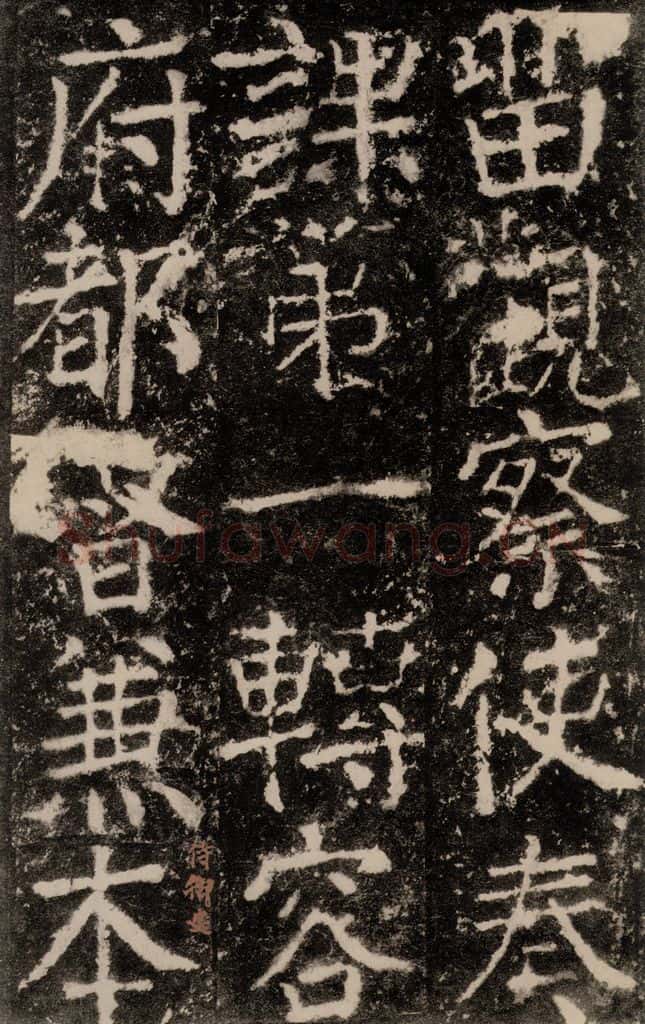 留觀察使奏
課第一轉容
府都督兼本
侍御史
Shufawang.CN